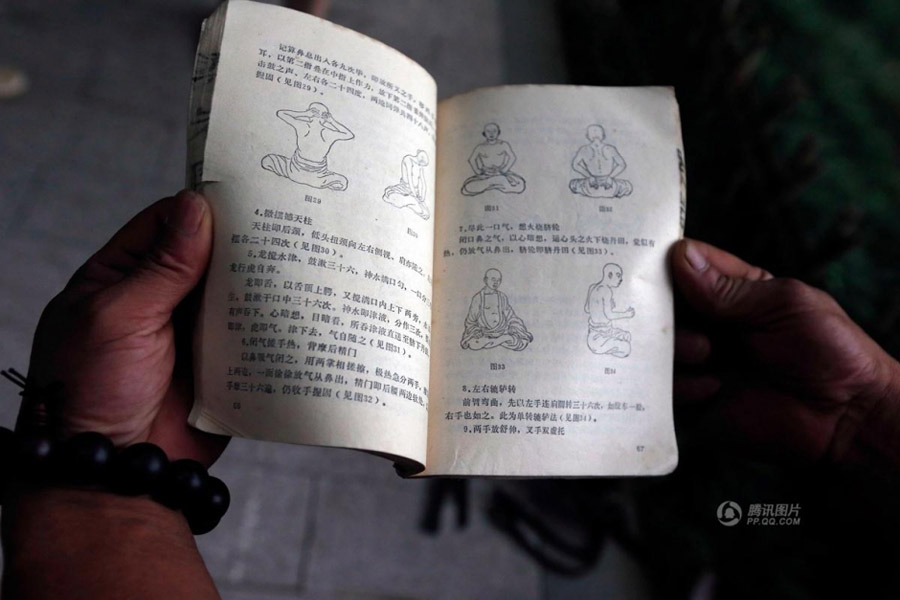 记算鼻息出入各九次毕，即放所叉之手，
耳，以第二指叠在中指上作力，放下第二指
击鼓之声，左右各二十四度，两地同弹共四十八声
握固（见图29）。
图29
图30
4.微摆撼天柱
天柱即后颈，低头扭颈向左右侧视，肩亦随之
摆各二十四次（见图30）。
5.龙搅水津，鼓漱三十六，神水满口匀，一口分
龙行虎自奔。
龙即舌，以舌顶上腭，又搅满口内上下两旁，
生，鼓漱于口中三十六次。神水即津液，分作三次，
有声吞下。心暗想，目暗看，所吞津液直送至脐下丹田
即液，虎即气。津下去，气自随之（见图31）。
6.闭气搓手热，背摩后精门
以鼻吸气闭之，用两掌相搓擦，极热急分两手，
上两边，一面徐徐放气从鼻出，精门即后腰两边软处，
手摩三十六遍，仍收手握固（见图32）。
图31
图32
7.尽此一口气，想火烧脐轮
闭口鼻之气，以心暗想，运心头之火下烧丹田，觉似有
热，仍放气从鼻出，脐轮即脐丹田（见图33）。
图33
图34
8.左右辘轳转
前臂弯曲，先以左手连肩圆转三十六次，如绞车一般，
右手也如之。此为单转辘轳法（见图34）。
9.两手放舒伸，叉手双虚托
67
腾讯图片
PP.QQ.COM